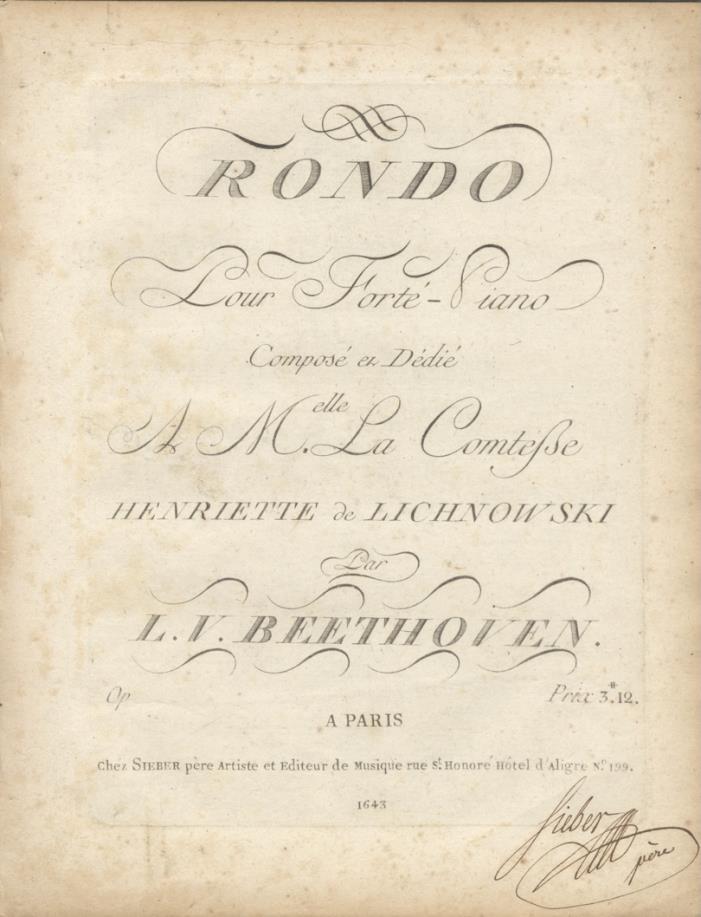 RONDO
Pour Forté-Piano
Composé et Dédié
A M.elle La Comtesse
HENRIETTE de LICHNOWSKI
Par
L.V. BEETHOVEN.
Op
Prix 3.# 12.
A PARIS
Chez SIEBER père Artiste et Editeur de Musique rue St. Honoré Hôtel d'Aligre No. 199.
1643
Sieber
père